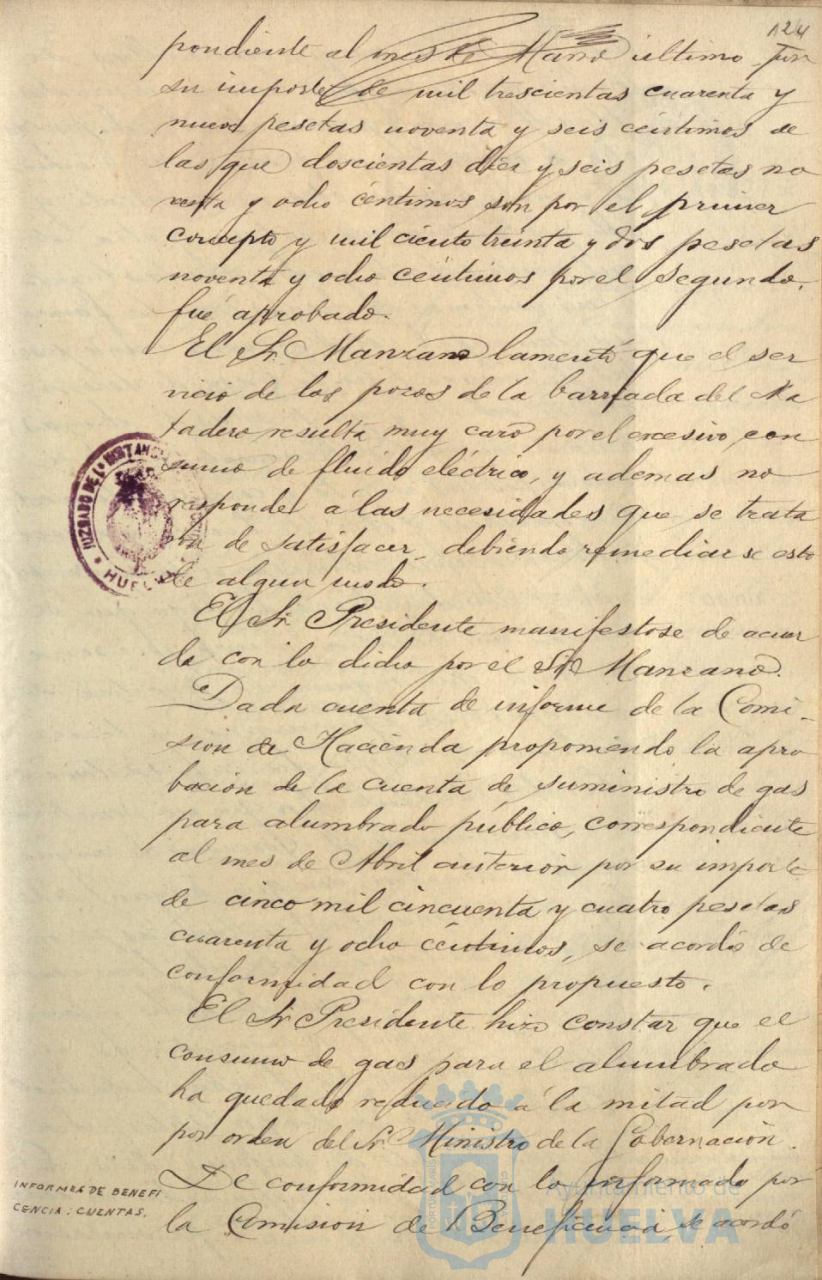 124
pondiente al mes de Marzo último por
su importe de mil trescientas cuarenta y
nueve pesetas noventa y seis céntimos de
las que doscientas diez y seis pesetas no
venta y ocho céntimos son por el primer
concepto y mil ciento treinta y dos pesetas
noventa y ocho céntimos por el segundo,
fué aprobado.
El Sr. Manzano lamentó que el ser
vicio de los pozos de la barriada del Ma
tadero resulta muy caro por el excesivo con
sumo de fluido eléctrico, y ademas no
responde á las necesidades que se trata
de satisfacer, debiendo remediarse esto
de algun modo.
El Sr. Presidente manifestose de acuer
do con lo dicho por el Sr. Manzano.
Dada cuenta de informe de la Comi-
sion de Hacienda proponiendo la apro
bación de la cuenta de suministro de gas
para alumbrado público, correspondiente
al mes de Abril anterior por su importe
de cinco mil cincuenta y cuatro pesetas
cuarenta y ocho céntimos, se acordó de
conformidad con lo propuesto.
El Sr. Presidente hizo constar que el
consumo de gas para el alumbrado
ha quedado reducido á la mitad por
por orden del Sr. Ministro de la Gobernación.
De conformidad con lo informado por
la Comision de Beneficencia, se acordó
INFORMES DE BENEFI
CENCIA. CUENTAS.
JUZGADO DE 1ª INSTANCIA
HUELVA
Ayuntamiento de
HUELVA